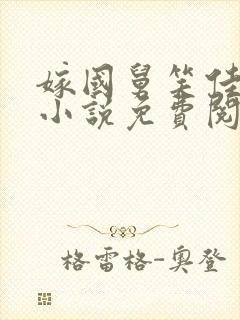 嫁國舅笑佳
小說免費閱
格雷格-奧登